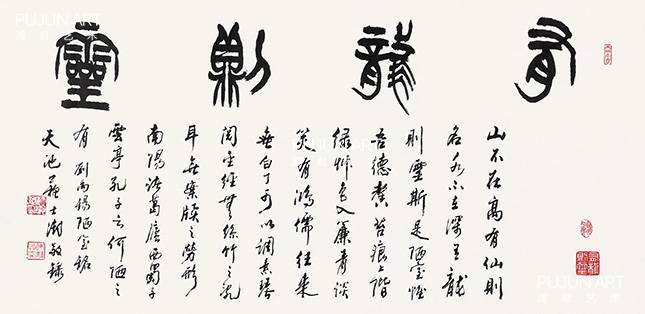 有龍則靈
山不在高有仙則
名水不在深有龍
則靈斯是陋室惟
吾德馨苔痕上階
綠艸色入簾青談
笑有鴻儒往來
無白丁可以調素琴
閱金經無絲竹之亂
耳無案牘之勞形
南陽諸葛廬西蜀子
雲亭孔子云何陋之
有 劉禹錫陋室銘
天池蘇士澍敬錄
PUJUN ART
PUJUN ART
PUJUN ART